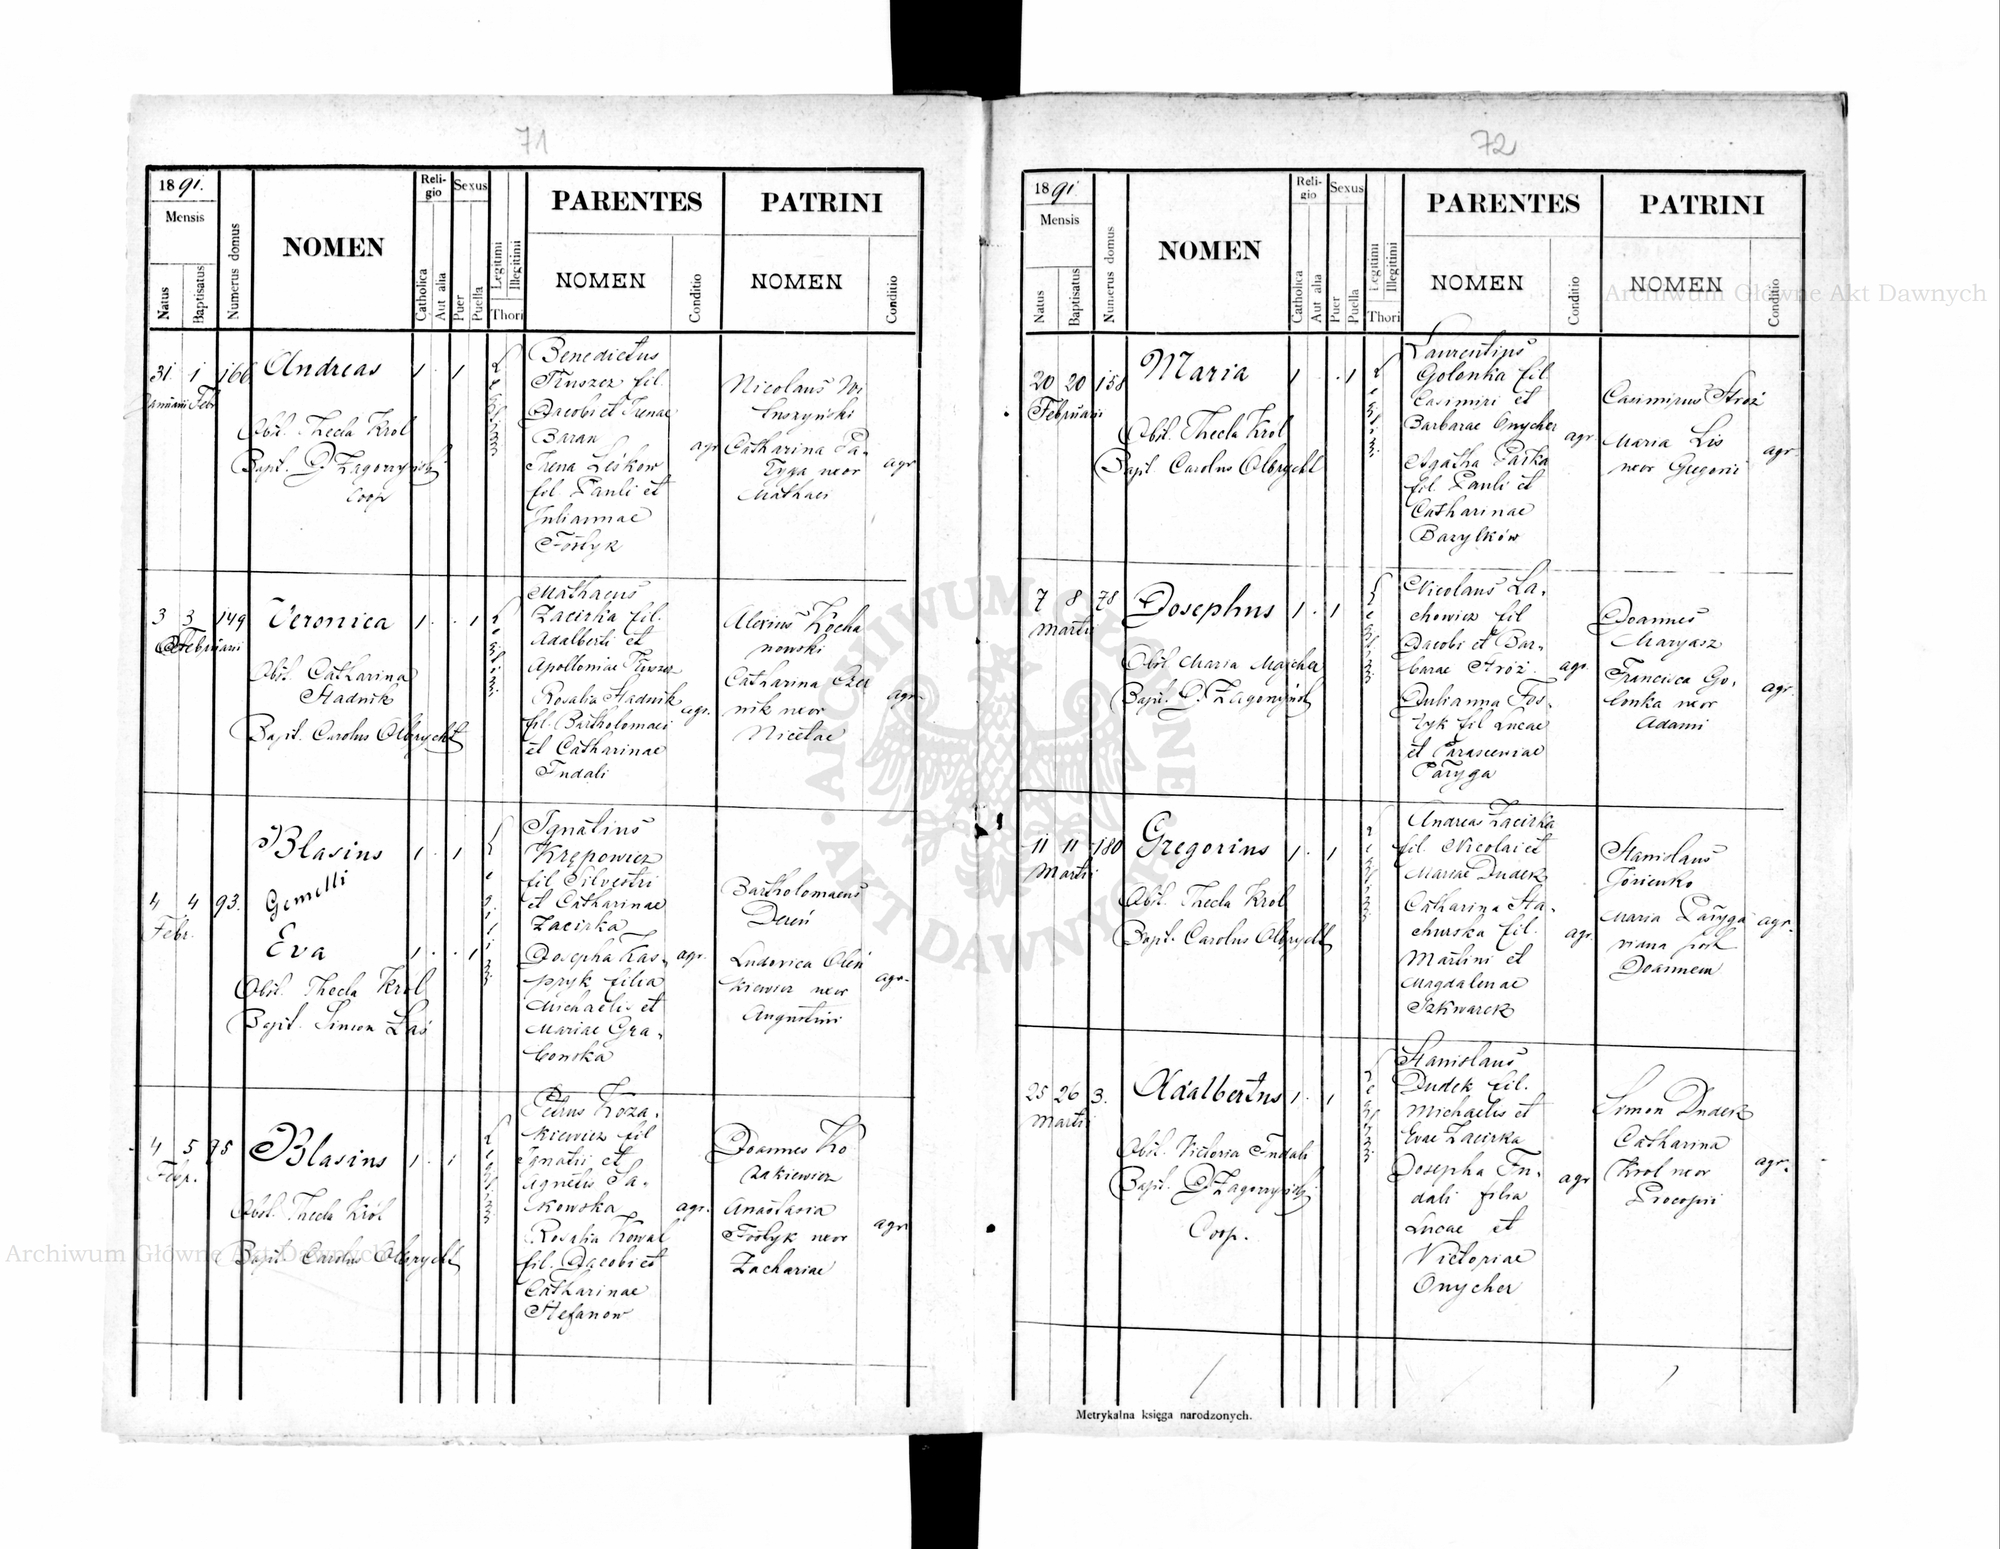 71
1891.
Mensis
Natus
Baptisatus
Numerus domus
NOMEN
Religio
Catholica
Aut alia
Sexus
Puer
Puella
Legitimi
Illegitimi
Thori
PARENTES
NOMEN
Conditio
PATRINI
NOMEN
Conditio
31 1 166
Januarii Febr
Andreas
1 . 1
Obst. Thecla Krol
Bapt. Zagorzyński
Coop
Benedictus
Truszez fil.
Jacobi et Irenae
Baran
Irena Leśkow
fil. Pauli et
Juliannae
Fostyk
agr
Nicolaus Wi
Catharina Pa-
ryga uxor
Mathaei
agr
3 3 149
Februarii
Veronica
1 . . 1
Obst. Catharina
Stadnik
Bapt. Carolus Olbrycht
Mathaeus
Zacirka fil.
Adalberti et
Apolloniae
Rosalia Stadnik
fil. Bartholomaei
et Catharinae
Fudali
agr.
Alexius Kocha
nowski
Catharina
nik uxor
Nicetae
agr.
4 4 93.
Febr.
Blasius
1 . 1
Gemelli
Eva
1 . . 1
Obst. Thecla Król
Bapt. Simon Łaś
Ignatius
Krępowicz
fil Silvestri
et Catharinae
Zacirka
Josepha Kas-
pryk filia
Michaelis et
Mariae Gra-
bonska
agr.
Bartholomaeus
Dereń
Ludovica Oleń
kiewicz uxor
Augustini
agr.
4 5 75
Febr.
Blasius
1 . 1
Obst. Thecla Król
Bapt. Carolus Olbrycht
Petrus Koza-
kiewicz fil
Ignatii et
Agnetis Sa-
kowska
Rosalia Kowal
fil. Jacobi et
Catharinae
Stefanow
agr.
Joannes Ko
zakiewicz
Anastasia
Fostyk uxor
Zachariae
agr
72
1891
Mensis
Natus
Baptisatus
Numerus domus
NOMEN
Religio
Catholica
Aut alia
Sexus
Puer
Puella
Legitimi
Illegitimi
Thori
PARENTES
NOMEN
Conditio
PATRINI
NOMEN
Conditio
20 20 158
Februarii
Maria
1 . . 1
Obst. Thecla Krol
Bapt. Carolus Olbrycht
Laurentius
Golonka fil
Casimiri et
Barbarae Onycher
Agatha Paśka
fil. Pauli et
Catharinae
Bazylków
agr.
Casimirus Stróż
Maria Lis
uxor Gregorii
agr.
7 8 78
Martii
Josephus
1 . 1
Obst. Maria
Bapt. Zagorzyński
Nicolaus La-
chowicz fil
Jacobi et Bar-
barae Stróż
Julianna Fos-
tyk fil Lucae
et Parasceviae
Paryga
agr.
Joannes
Maryasz
Francisca Go-
lonka uxor
Adami
agr.
11 11 180
Martii
Gregorius
1 . 1
Obst. Thecla Król
Bapt. Carolus Olbrycht
Andreas Zacirka
fil. Nicolai et
Mariae Dudek
Catharina Sta-
churska fil.
Martini et
Magdalenae
Szkwarek
agr.
Stanislaus
Maria Paryga
post
Joannem
agr.
25 26 3.
Martii
Adalbertus
1 . 1
Obst. Victoria Fudali
Bapt. Zagorzyński
Coop.
Stanislaus
Dudek fil.
Michaelis et
Evae Zacirka
Josepha Fu-
dali filia
Lucae et
Victoriae
Onycher
agr
Simon Dudek
Catharina
Krol uxor
Procopii
agr.
Metrykalna księga narodzonych.
Archiwum Główne Akt Dawnych
Archiwum Główne Akt Dawnych
ARCHIWUM GŁÓWNE
AKT DAWNYCH